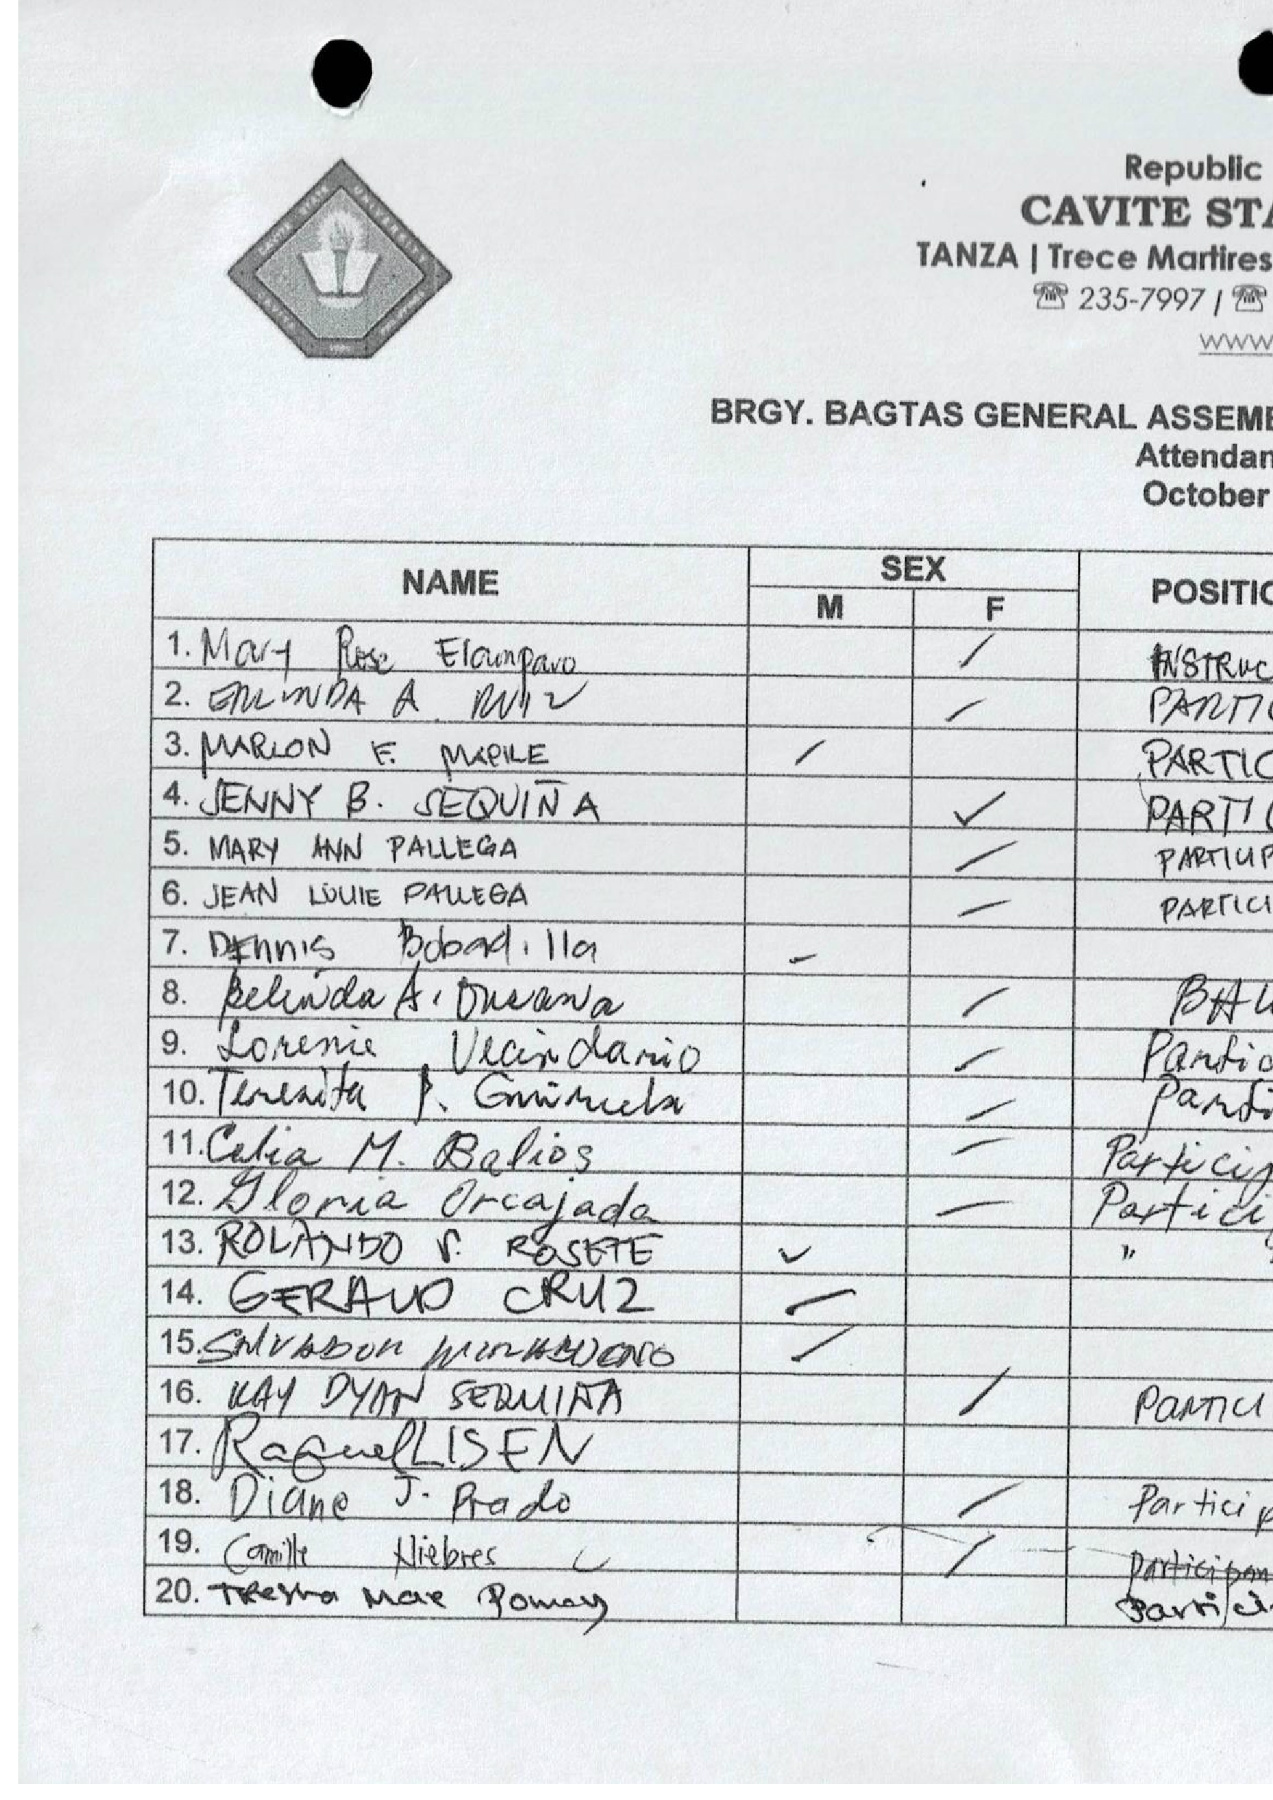 CAVITE STATE UNIVERSITY
CAVITE PHILIPPINES
Republic
CAVITE STA
TANZA | Trece Martires
☎ 235-7997 | ☎
www
BRGY. BAGTAS GENERAL ASSEMB
Attendan
October
NAME SEX POSITIO
M F
1. Mary Rose Elamparo / INSTRUC
2. ERLINDA A RUIZ / PARTIC
3. MARLON F. MAPILE / PARTIC
4. JENNY B. SEQUIÑA ✓ PARTIC
5. MARY ANN PALLEGA / PARTICIP
6. JEAN LOUIE PALLEGA / PARTICI
7. Dennis Bobadilla /
8. Belinda A. / BAG
9. Lorenie Vecindario / Partic
10. Teresita P. / Parti
11. Celia M. Balios / Particip
12. Gloria Orcajada / Partici
13. ROLANDO V. ROSETE ✓ "
14. GERALD CRUZ /
15. SALVADOR /
16. KAY DYAN SEQUIÑA / PARTICI
17. Raquel LISEN
18. Diane J. Prado / Particip
19. Camille Niebres / participan
20. Mae Partici